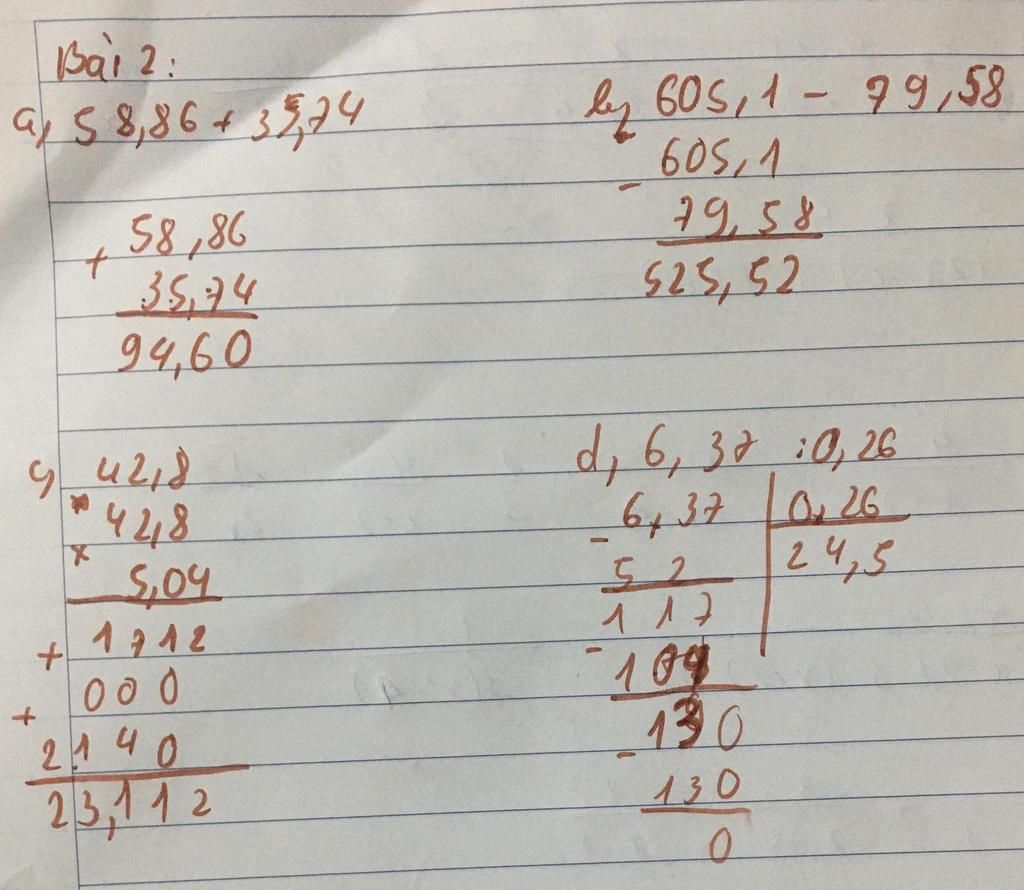 Bài 2:
a, 58,86 + 35,74
+ 58,86
35,74
94,60
b, 605,1 - 79,58
- 605,1
79,58
525,52
c, 42,8
42,8
x
5,04
+ 1712
000
+
2140
23,112
d, 6,37 : 0,26
- 6,37 0,26
52 24,5
117
- 104
130
- 130
0